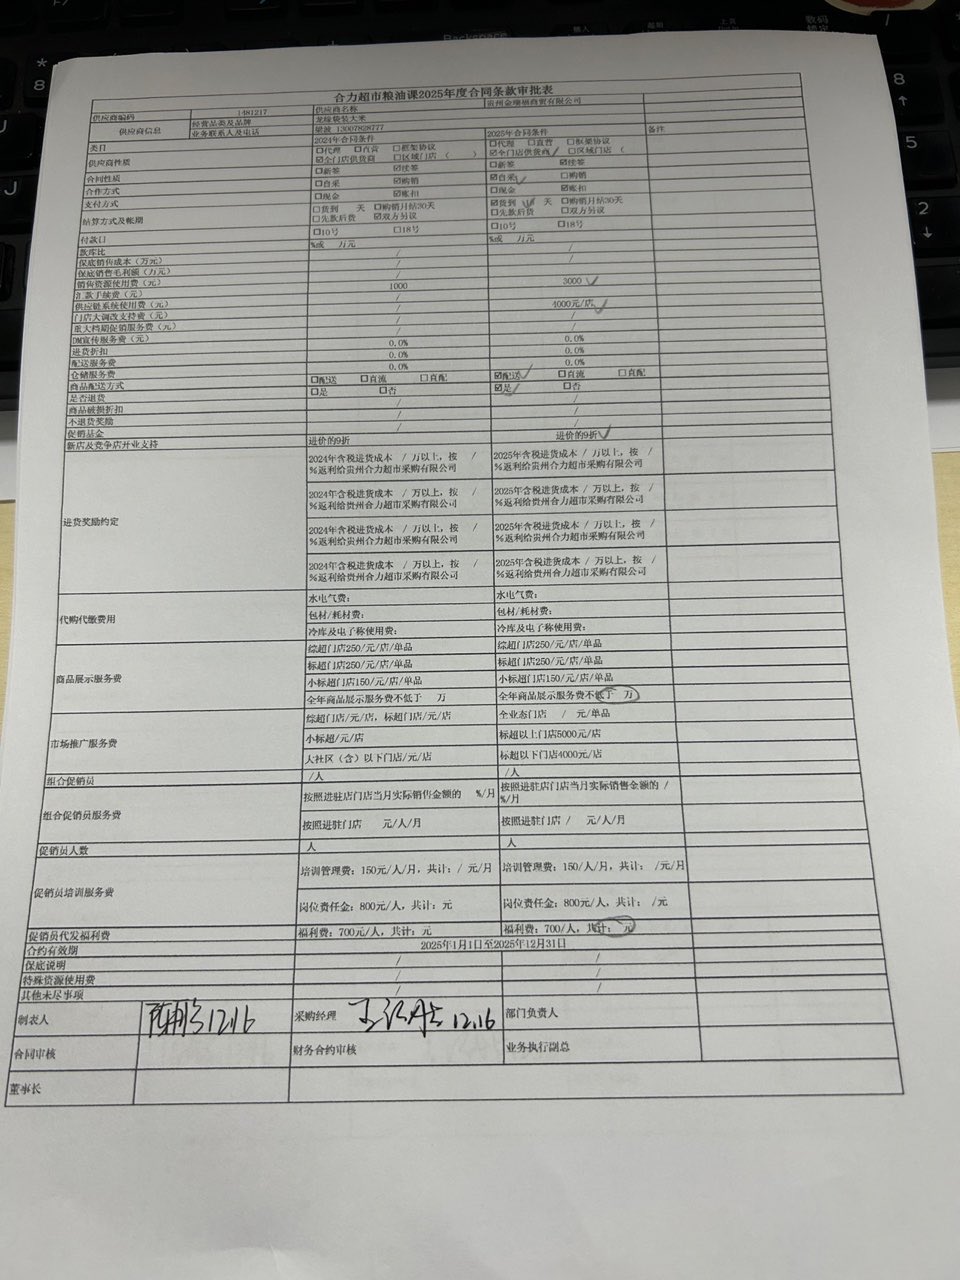 合力超市粮油课2025年度合同条款审批表
供应商编码 1481217 供应商名称 贵州金壕福商贸有限公司
供应商信息 经营品类及品牌 龙稼袋装大米
业务联系人及电话 梁波 13007828777
类目 2024年合同条件 2025年合同条件 备注
供应商性质 □代理 □直营 □框架协议 □代理 □直营 □框架协议
☑全门店供货商 □区域门店( ) ☑全门店供货商 □区域门店(
合同性质 □新签 ☑续签 □新签 ☑续签
合作方式 □自采 ☑购销 ☑自采 □购销
支付方式 □现金 ☑账扣 □现金 ☑账扣
结算方式及帐期 □货到 天 □购销月结30天 ☑货到 天 □购销月结30天
□先款后货 ☑双方另议 □先款后货 □双方另议
付款日 □10号 □18号 □10号 □18号
款库比 %或 万元 %或 万元
保底销售成本（万元） / /
保底销售毛利额（万元） / /
销售资源使用费（元） / 3000
汇款手续费（元） 1000
供应链系统使用费（元） / 4000元/店
门店大调改支持费（元） / /
重大档期促销服务费（元） / /
DM宣传服务费（元） / /
进货折扣 0.0% 0.0%
配送服务费 0.0% 0.0%
仓储服务费 0.0% 0.0%
商品配送方式 □配送 □直流 □直配 ☑配送 □直流 □直配
是否退货 □是 □否 ☑是 □否
商品破损折扣 / /
不退货奖励 / /
促销基金 / /
新店及竞争店开业支持 进价的9折 进价的9折
进货奖励约定
2024年含税进货成本 / 万以上，按 / %返利给贵州合力超市采购有限公司 2025年含税进货成本 / 万以上，按 / %返利给贵州合力超市采购有限公司
2024年含税进货成本 / 万以上，按 / %返利给贵州合力超市采购有限公司 2025年含税进货成本 / 万以上，按 / %返利给贵州合力超市采购有限公司
2024年含税进货成本 / 万以上，按 / %返利给贵州合力超市采购有限公司 2025年含税进货成本 / 万以上，按 / %返利给贵州合力超市采购有限公司
2024年含税进货成本 / 万以上，按 / %返利给贵州合力超市采购有限公司 2025年含税进货成本 / 万以上，按 / %返利给贵州合力超市采购有限公司
代购代缴费用
水电气费： 水电气费：
包材/耗材费： 包材/耗材费：
冷库及电子称使用费： 冷库及电子称使用费：
商品展示服务费
综超门店250/元/店/单品 综超门店250/元/店/单品
标超门店250/元/店/单品 标超门店250/元/店/单品
小标超门店150/元/店/单品 小标超门店150/元/店/单品
全年商品展示服务费不低于 万 全年商品展示服务费不低于 万
市场推广服务费
综超门店/元/店，标超门店/元/店 全业态门店 / 元/单品
小标超/元/店 标超以上门店5000元/店
大社区（含）以下门店/元/店 标超以下门店4000元/店
组合促销员 /人 /人
组合促销员服务费
按照进驻店门店当月实际销售金额的 %/月 按照进驻店门店当月实际销售金额的 / %/月
按照进驻门店 元/人/月 按照进驻门店 / 元/人/月
促销员人数 人 人
促销员培训服务费
培训管理费：150元/人/月，共计：/ 元/月 培训管理费：150/人/月，共计： /元/月
岗位责任金：800元/人，共计：元 岗位责任金：800元/人，共计： /元
促销员代发福利费 福利费：700元/人，共计：元 福利费：700/人，共计： 元
合约有效期 2025年1月1日至2025年12月31日
保底说明 / /
特殊资源使用费 / /
其他未尽事项 / /
制表人 12.16 采购经理 12.16 部门负责人
合同审核 财务合约审核 业务执行副总
董事长